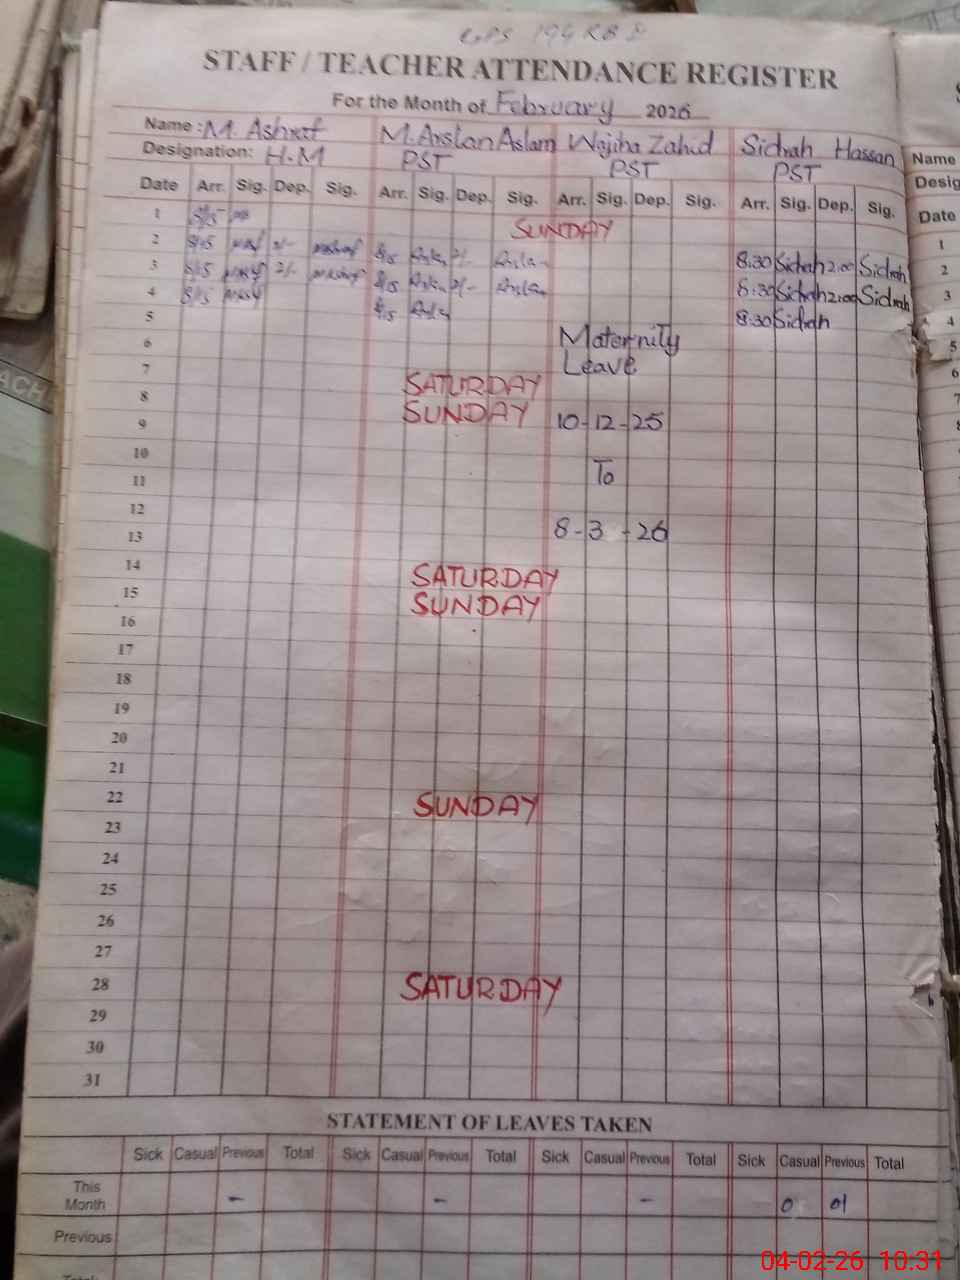 GPS 194 RB 2
STAFF / TEACHER ATTENDANCE REGISTER
For the Month of February 2026
Name : M. Ashraf M. Arslan Aslam Wajiha Zahid Sidrah Hassan Name
Designation: H.M PST PST PST Desig
Date Arr. Sig. Dep. Sig. Arr. Sig. Dep. Sig. Arr. Sig. Dep. Sig. Arr. Sig. Dep. Sig. Date
1 8/15 SUNDAY 1
2 8/15 2/- 8/15 2/- 8:30 Sidrah 2:00 Sidrah 2
3 8/15 2/- 8/15 2/- 8:30 Sidrah 2:00 Sidrah 3
4 8/15 8/15 8:30 Sidrah 4
5 5
6 Maternity 6
7 Leave 7
SATURDAY
8 SUNDAY
9 10-12-25
10
11 To
12
13 8-3-26
14 SATURDAY
15 SUNDAY
16
17
18
19
20
21
22 SUNDAY
23
24
25
26
27
28 SATURDAY
29
30
31
STATEMENT OF LEAVES TAKEN
Sick Casual Previous Total Sick Casual Previous Total Sick Casual Previous Total Sick Casual Previous Total
This Month - - - 0 01
Previous
Total
04-02-26 10:31